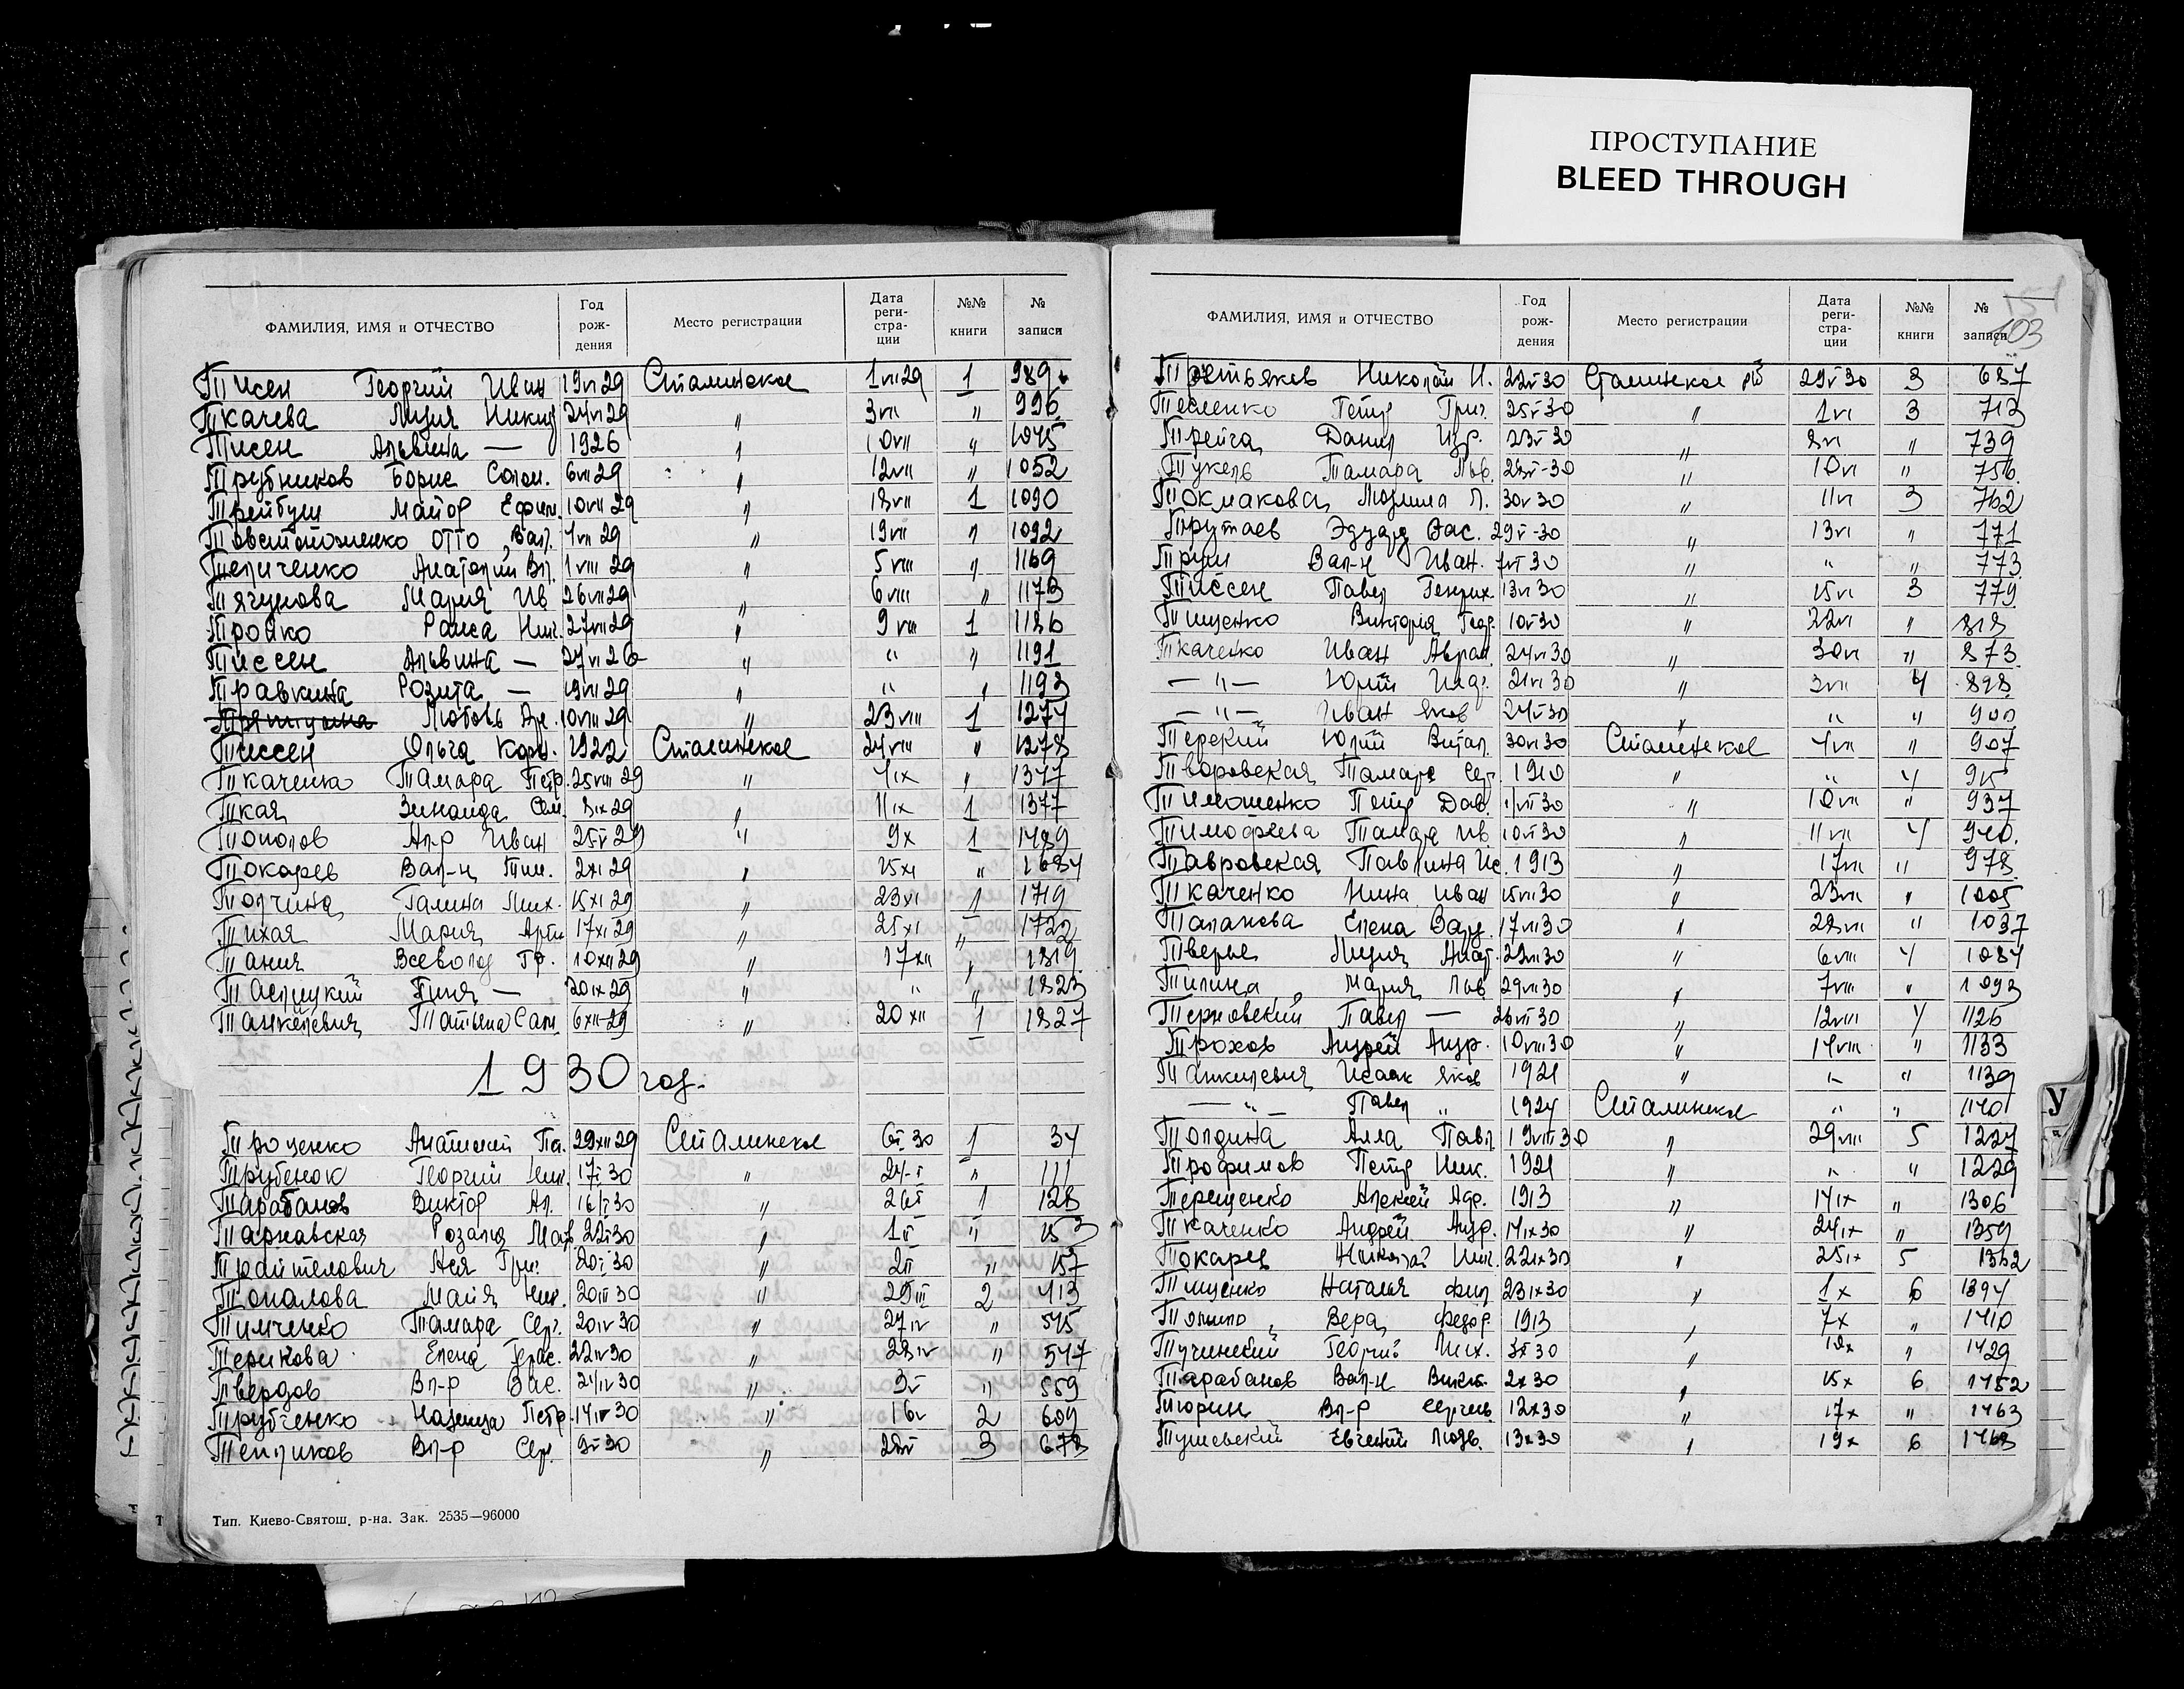 ПРОСТУПАНИЕ
BLEED THROUGH
ФАМИЛИЯ, ИМЯ и ОТЧЕСТВО Год рож- дения Место регистрации Дата реги- стра- ции №№ книги № записи
Тисен Георгий Иван 19VI29 Сталинское 1VII29 1 989
Ткачева Лидия Никит 24VI29 " 3VII " 996
Тисен Альвина — 1926 " 10VII " 1045
Трубников Борис Солом. 6VII29 " 12VII " 1052
Трейбуш Майор Ефим. 10VII29 " 18VII 1 1090
Товстоноженко Отто Вал. 4VII29 " 19VII " 1092
Тепиченко Анатолий Вл. 1VIII29 " 5VIII " 1169
Тягунова Мария Ив 26VII29 " 6VIII " 1173
Тройко Раиса Ник. 27VII29 " 9VIII 1 1186
Тиссен Альвина — 27VI26 " " " 1191
Травкина Розита — 19VII29 " " " 1193
Любовь 10VIII29 " 23VIII 1 1274
Тиссен Ольга Корн. 1922 Сталинское 24VIII " 1278
Ткаченко Тамара Петр. 25VIII29 " 4IX " 1347
Ткая Зинаида Сем. 8IX29 " 11IX 1 1377
Тополов Ал-р Иван 25V29 " 9X 1 1489
Токарев Вал-н Тим. 2XI29 " 15XI " 1684
Толчина Галина Мих. 15XI29 " 23XI 1 1719
Тихая Мария Арти 17XI29 " 25XI " 1722
Танич Всеволод Гр. 10XII29 " 17XII " 1819
Таслицкий — 20IX29 " " " 1823
Танкелевич Татьяна Сам. 6XII29 " 20XII 1 1827
1930 год.
Троценко Анатолий Па. 29XII29 Сталинское 6I30 1 34
Трубенок Георгий Ник. 17I30 " 24I " 111
Тарабанов Виктор Ал. 16I30 " 26I 1 128
Тарнавская Розалия 22I30 " 1II " 153
Трайтелович Ася Григ. 20I30 " 2II " 157
Топалова Майя Ник. 20III30 " 29III 2 413
Тимченко Тамара Серг. 20IV30 " 27IV " 545
Терикова Елена Герас. 22IV30 " 28IV " 547
Твердов Вл-р Вас. 21IV30 " 3V " 559
Трубченко Надежда Петр. 14IV30 " 16V 2 609
Тепликов Вл-р Сер. 9V30 " 28V 3 673
Тип. Киево-Святош. р-на. Зак. 2535—96000
103
ФАМИЛИЯ, ИМЯ и ОТЧЕСТВО Год рож- дения Место регистрации Дата реги- стра- ции №№ книги № записи
Третьяков Николай И. 22V30 Сталинское 29V30 3 687
Тесленко Петр Григ. 25V30 " 1VI 3 713
Трейга Данил Изр. 23V30 " 8VI " 739
Тукель Тамара Льв. 28V-30 " 10VI " 756
Токмакова Людмила Л. 30V30 " 11VI 3 762
Трутаев Эдуард Вас. 29V-30 " 13VI " 771
Труш Вал-н Иван. 7VI30 " " " 773
Тиссен Павел Генрих. 13VI30 " 15VI 3 779
Тищенко Виктория Геор. 10VI30 " 22VI " 818
Ткаченко Иван Аврам. 24VI30 " 30VI " 873
— " — Юрий 21VI30 " 3VII 4 898
— " — Иван Яков 24VI30 " " " 900
Терский Юлий Витал. 30VI30 Сталинское 4VII " 907
Творовская Тамара Сер. 1910 " " 4 915
Тимошенко Петр Дав. 1VII30 " 10VII " 937
Тимофеева Тамара Ив. 10VI30 " 11VII 4 940
Тавровская Павлина Ис. 1913 " 17VII " 978
Ткаченко Нина Иван 15VII30 " 23VII " 1005
Талапова Елена 17VII30 " 28VII " 1037
Тверье Лидия Анат. 22VII30 " 6VIII 4 1084
Типина Мария Льв 29VII30 " 7VIII " 1093
Терновский Павел — 26VI30 " 12VIII 4 1126
Трохов Андрей Андр. 10VIII30 " 14VIII " 1133
Танкилевич Исаак Яков 1921 " " " 1139
— " — Павел " 1924 Сталинское " " 1140
Толдина Алла Павл 19VIII30 " 29VIII 5 1227
Трофимов Петр Ник. 1921 " " " 1229
Терещенко Алексей Афр. 1913 " 14IX " 1306
Ткаченко Андрей Андр. 14IX30 " 24IX " 1359
Токарев Николай Ник. 22IX30 " 25IX 5 1362
Тищенко Наталья Фил 23IX30 " 1X 6 1394
Вера Федор 1913 " 7X " 1410
Тучинский Георгий Мих. 3X30 " 12X " 1429
Тарабанов Вал-н 2X30 " 15X 6 1452
Тюрин Вл-р Сергеев 12X30 " 17X " 1463
Тушевский Евгений Людв. 13X30 " 19X 6 1468
У